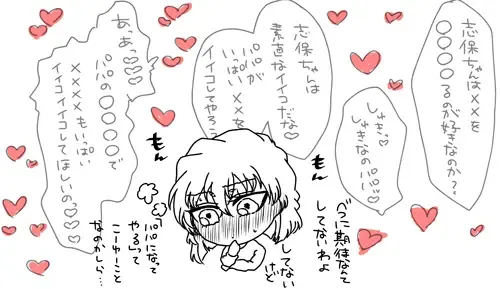 志保ちゃんは××を
○○○○るのが好きなのか?
しゅき♡
しゅきなのパパ♡♡
志保ちゃんは
素直なイイコだな♡
パパが
いっぱい××を
イイコしてやろう
あっあっ♡♡♡
パパの○○○○で
××××もいっぱい
イイコイイコしてほしいの♡♡♡
もん
もん
べつに期待なんて
してないわよ
してない
けど
パパになって
やるって
こーゆーこと
なのかしら…